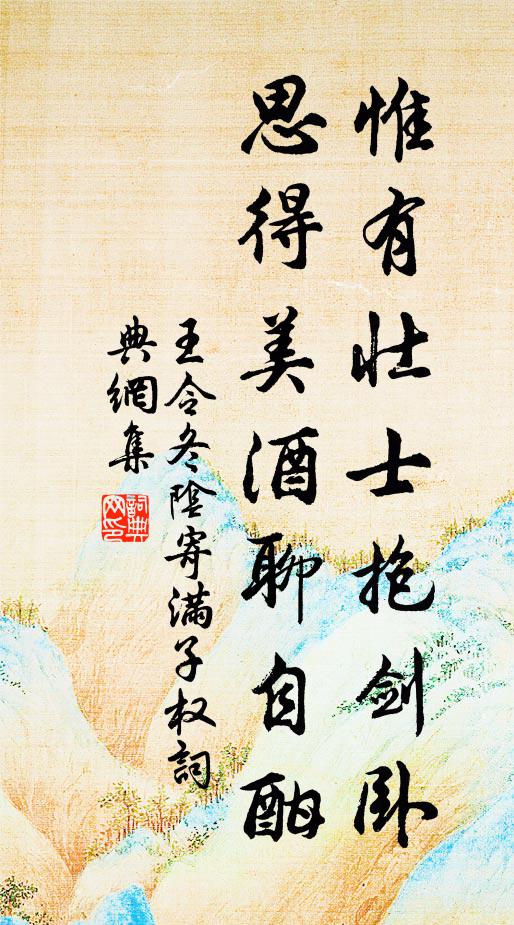 惟有壮士抱剑卧
思得美酒聊自酣
王令冬陰寄满子权詞
典網集
詞典
网印